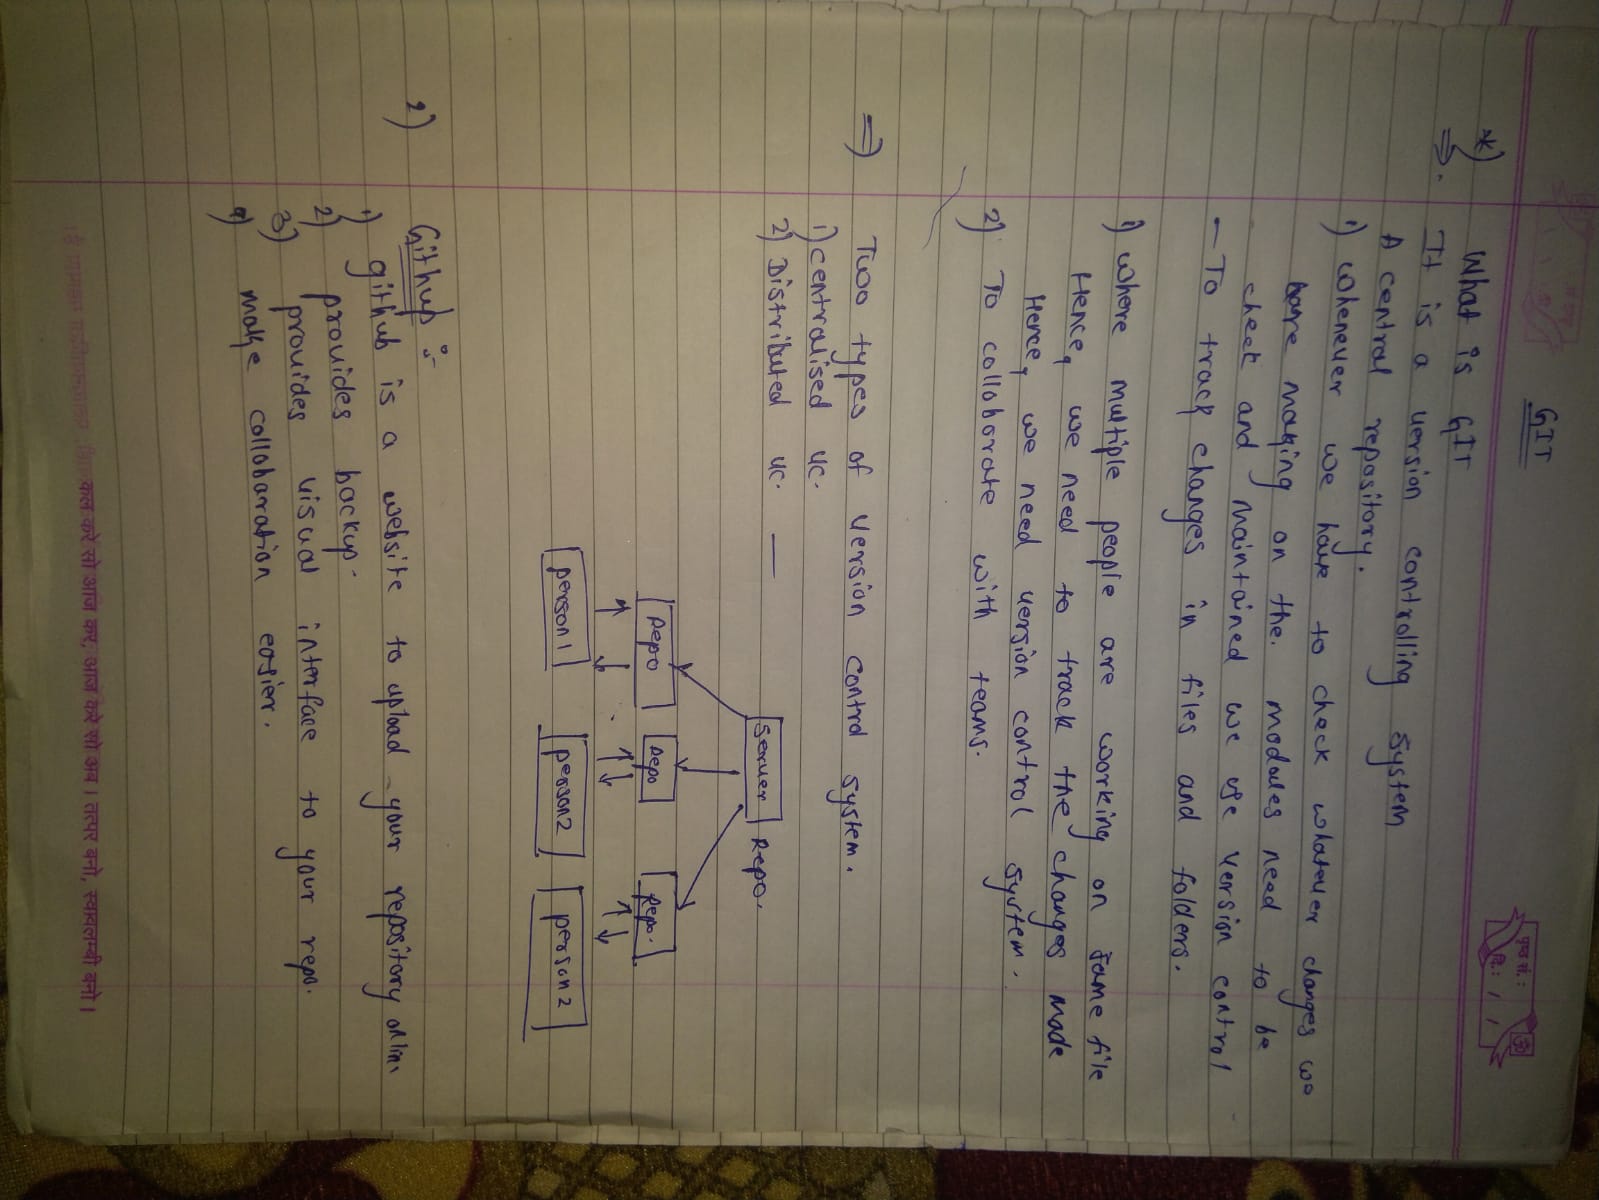 GIT
पृष्ठ सं. :
दि. : / /
*) What is GIT
⇒. It is a version controlling system
A central repository.
1) Whenever we have to check whatever changes we
are making on the. modules need to be
check and maintained we use version control
- To track changes in files and folders.
1) where multiple people are working on same file
Hence, we need to track the changes made
Hence, we need version control system.
2) To colloborate with teams.
⇒ Two types of version control system.
1) centralised vc.
2) Distributed vc. —
Server Repo.
Repo Repo Repo.
person1 person2 person2
2) Githup :-
1) github is a website to upload your repository onlin
2) provides backup.
3) provides visual interface to your repo.
4) make collobaration easier.
कल करे सो आज कर, आज करे सो अब । तत्पर बनो, स्वावलम्बी बनो ।